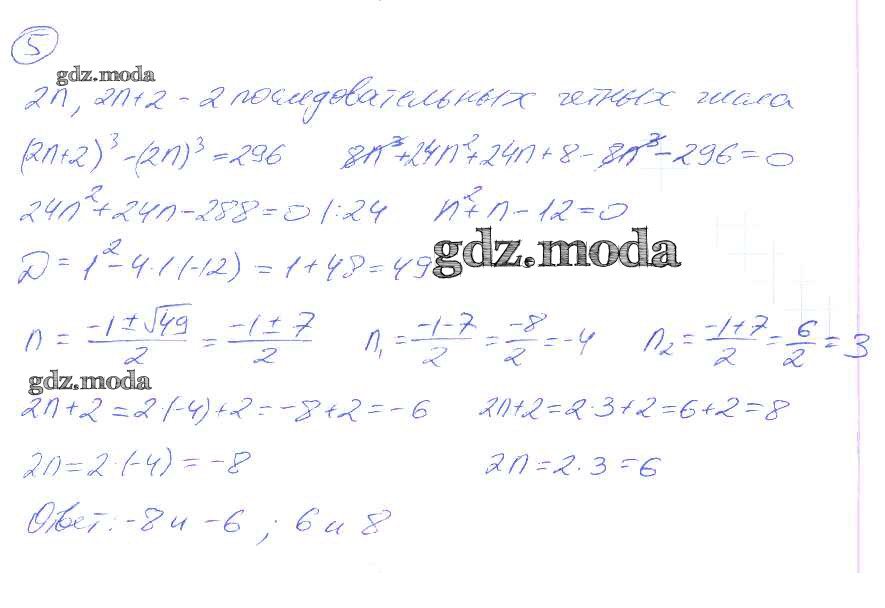 5
gdz.moda
2n, 2n+2 - 2 последовательных четных числа
(2n+2)³ - (2n)³ = 296    8n³+24n²+24n+8-8n³-296=0
24n²+24n-288=0 |:24    n²+n-12=0
gdz.moda
D = 1²-4·1(-12) = 1+48=49
n = (-1±√49)/2 = (-1±7)/2    n₁ = (-1-7)/2 = -8/2 = -4    n₂ = (-1+7)/2 = 6/2 = 3
gdz.moda
2n+2=2·(-4)+2=-8+2=-6    2n+2=2·3+2=6+2=8
2n=2·(-4)=-8    2n=2·3=6
Ответ: -8 и -6 ; 6 и 8